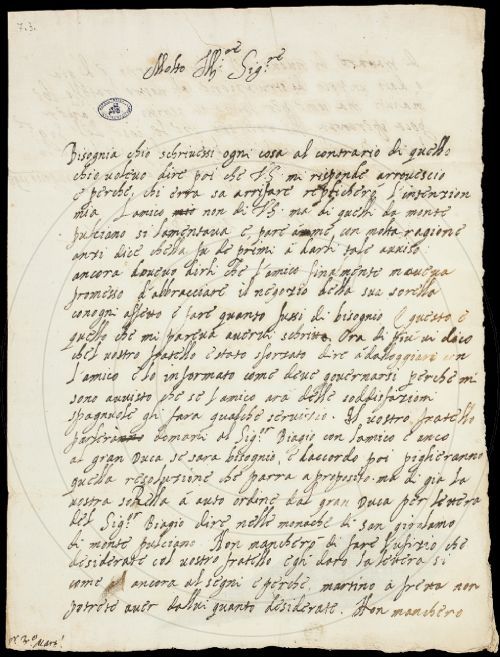 7.3.
Molto Ill.re Sig.re
Bisognia chio schrivessi ogni cosa al contrario di quello
chio volevo dire poi che VS mi risponde arrovescio
e perche chi erra sa arrifare replichero l'intenzion
mia l'amico non di VS ma di quelli da monte
pulciano si lamentava e pare con molta ragione
anzi dice chella fu de primi a darli tale aviso
ancora dovevo dirli che l'amico finamente maveva
promesso d'abracciare il negozio della sua sorella
conogni affetto e fare quanto fussi di bisognio e questo e
quello che mi pareva avervi schritto. Ora di piu vi dico
chel vostro fratello e stato sforzato dire a dalloggiare con
l'amico e lo informato come deve governarsi perche mi
sono avvisto che se l'amico ara delle soddisfazioni
spagnuole gli fara qualche servitio. Il vostro fratello
domani al Sig.r Biagio con l'amico e anco
al gran Duca se sara bisognio, e daccordo poi piglieranno
quella resoluzione che parra a proposito. ma di gia la
vostra sorella a auto ordine dal gran Duca per lettera
del Sig.r Biagio dire nelle monache di san girolamo
di monte pulciano. Non manchero di fare l'ufizio che
desiderate col vostro fratello egli dato la lettera si
come ancora al segni e perche martino a fretta non
potrete aver dallui quanto desiderate. Non manchero